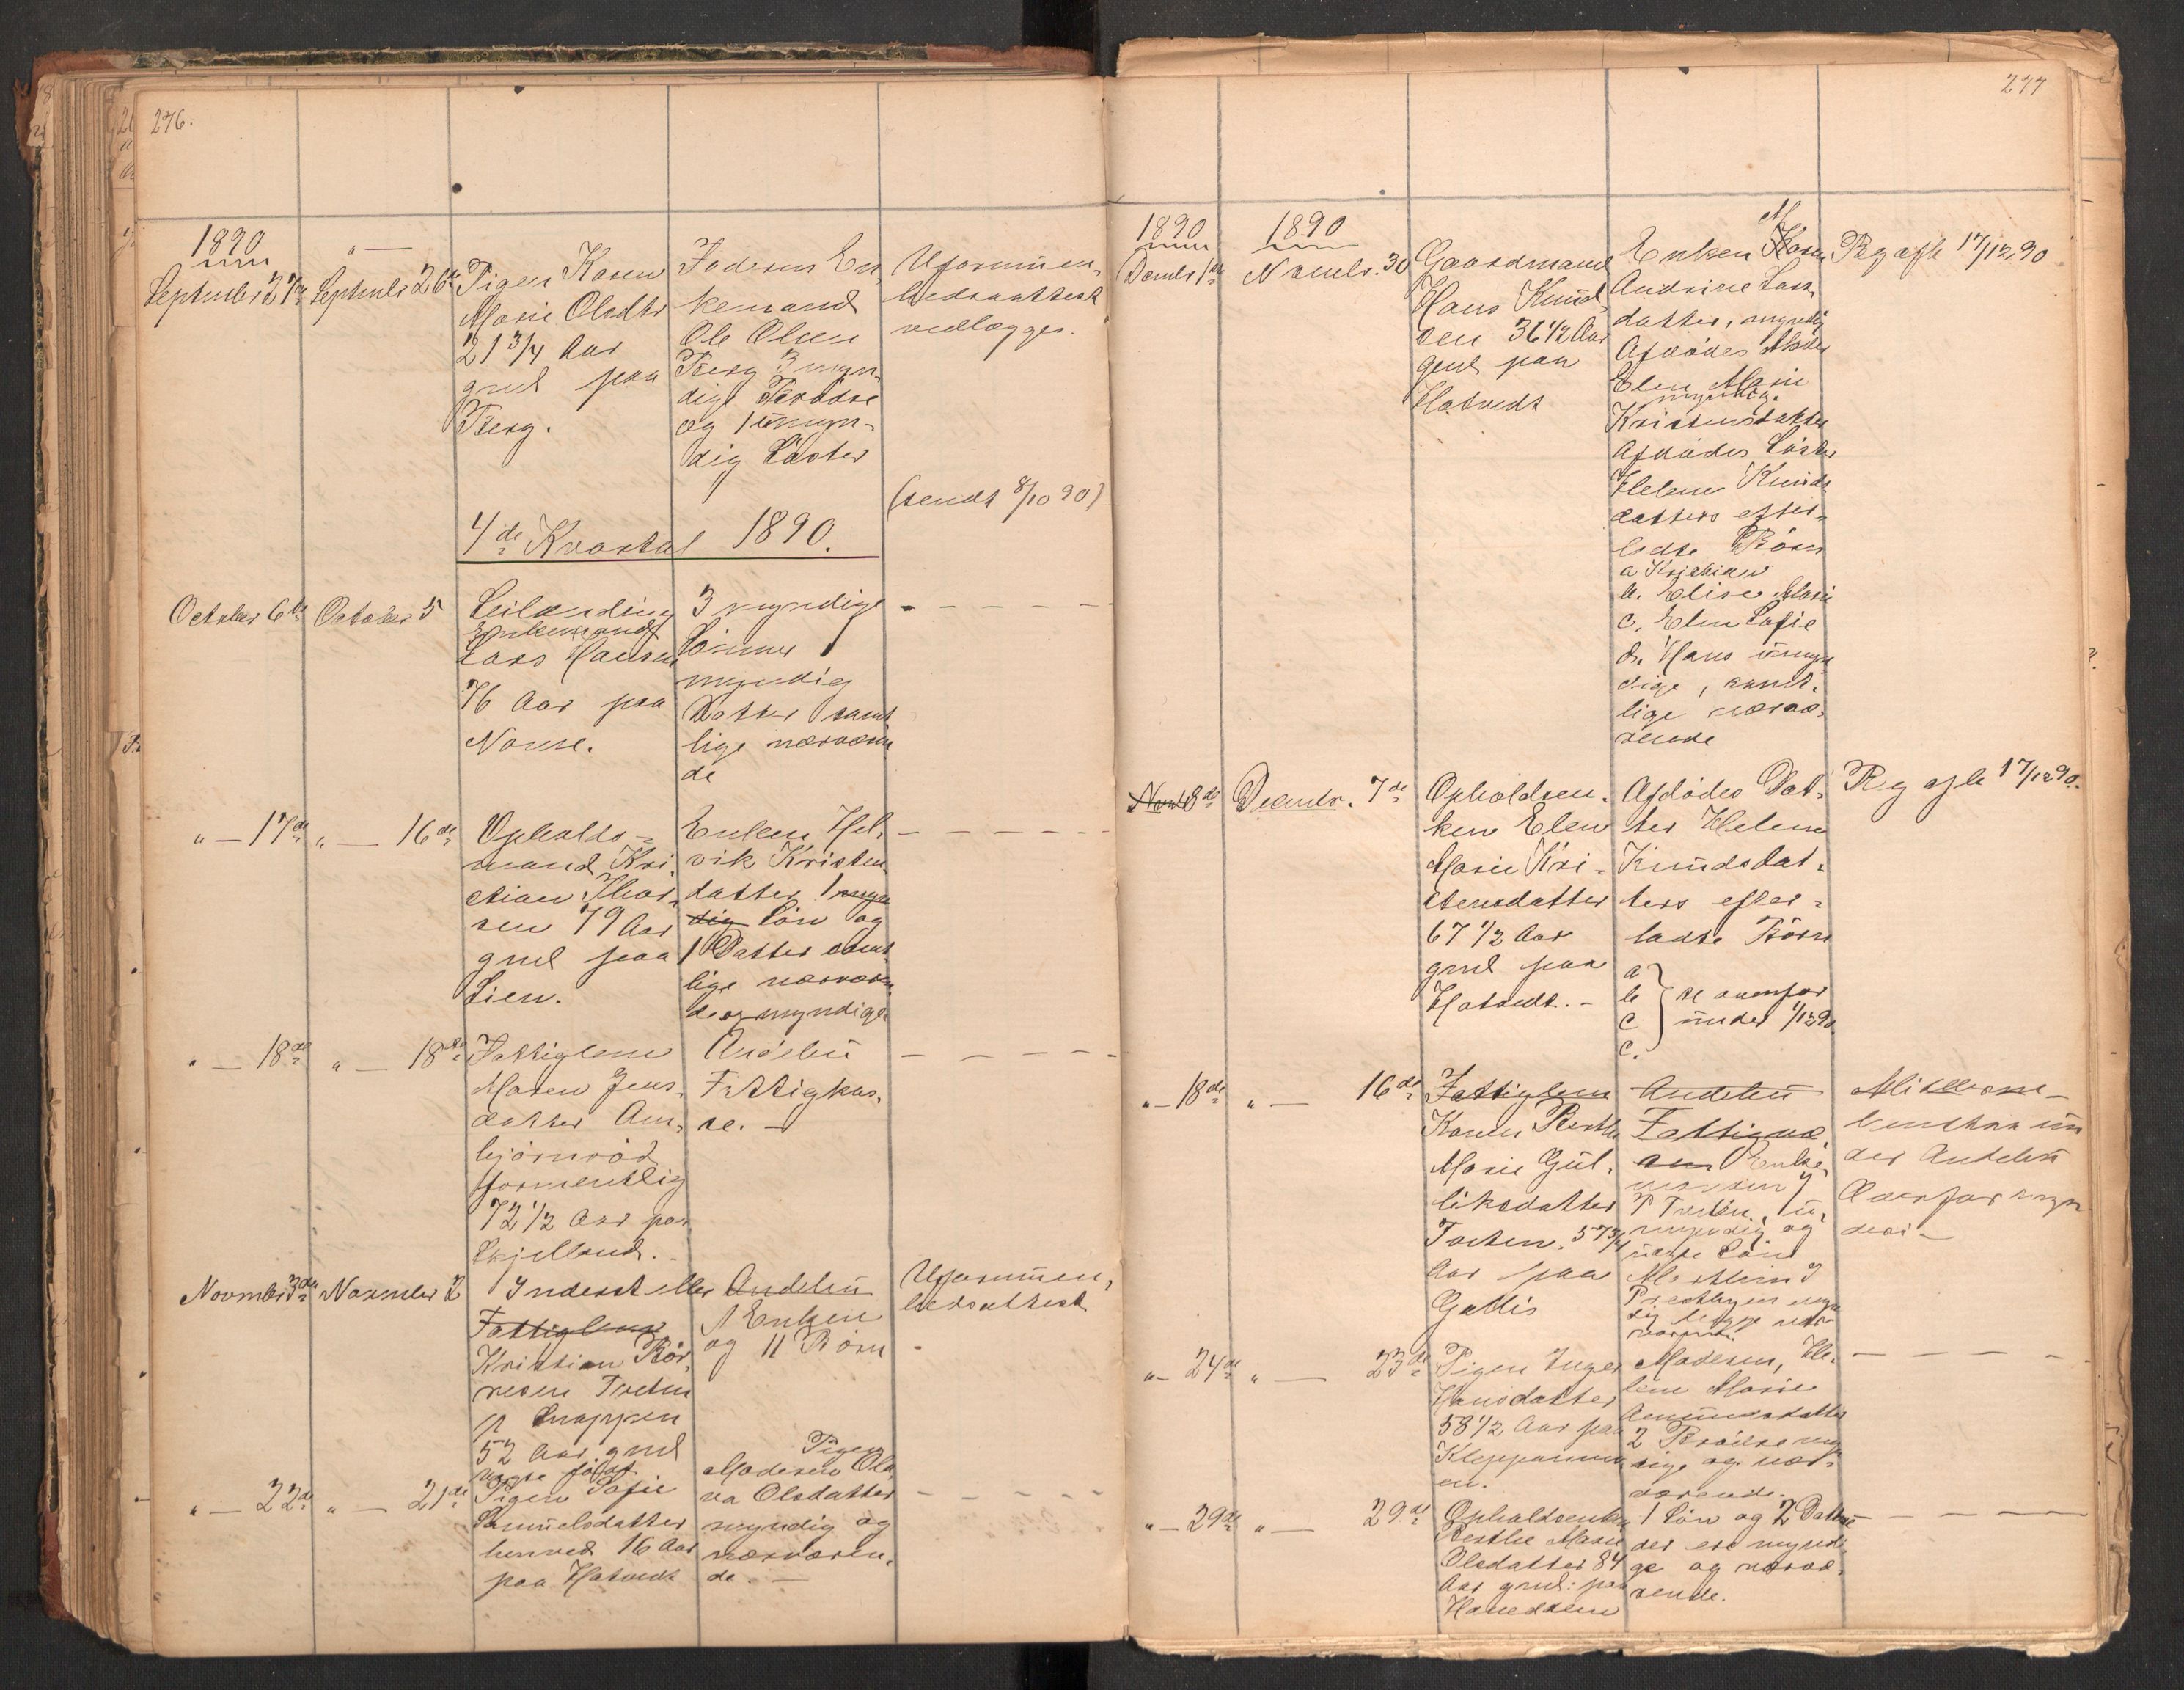 276.
1890
September 27de
"—
September 26de
Pigen Karen
Marie Olsdtr
21 3/4 Aar
gml paa
Berg.
Faderen En
kemand
Ole Olsen
Berg 3 myn
dige Brødre
og 1 umyn-
dig Søster
Uformuen-
hedsattest
vedlægges.
(sendt 8/10 90)
4de Kvartal 1890.
October 6te
October 5
Leilænding
Enkemand
Lars Hansen
76 Aar paa
3 myndige
Sønner 1
myndig
Datter samt
lige nærværen
de
" — 17de
" — 16de
Opholds-
mand Kri
stian Thor
sen 79 Aar
gml paa
Lien.
Enken Hel
vik Kristen
datter 1 myn
dig Søn og
1 Datter samt
lige nærværen
de og myndige
" — 18de
" — 18de
Fattiglem
Maren Jens
datter Am
bjørnrød
formentlig
72 1/2 Aar paa
Skjelland.
Andebu
Fattigkas
se. —
November 3de
November 2
Inderst eller
Fattiglem
Kristian Bør
resen Trolin
p Snappen
52 Aar gml
Andebu
1 Enken
og 11 Børn
Uformuen,
hedsattest
" — 22de
" — 21de
Pigen Sofie
Samuelsdatter
henved 16 Aar
paa Hotvedt
Pigen
Moderen Ola
va Olsdatter
myndig og
nærværen,
de. —
277
1890
Decmbr 1ste
1890
Novmbr. 30
Gaardmand
Hans Knud
sen 36 1/2 Aar
gml paa
Hotvedt
M
Enken Karen
Andrine Lars
datter, myndig
Afdødes Moder
Elen Marie
myndig.
Kristensdatter
Afdødes Søster
Helene Knuds
datters efter-
ladte Børn
a Kristian
b. Elise Marie
c. Elen Sofie
d. Hans umyn
dige, samt-
lige nærvæ-
rende
Reg afh 17/12 90
Novbr 8de
Decmbr. 7de
Opholdsen.
ken Elen
Marie Kri-
stensdatter
67 1/2 Aar
gml paa
Hotvedt. -
Afdødes Dat-
ter Helene
Knudsdat-
ters efter-
ladte Børn
a
b
c
c.
se ovenfor
under 1/12 90
Reg afh 17/12 90.
" — 18de
" — 16de
Fattiglem
Karen Berthe
Marie Gul-
liksdatter
Trolin. 57 3/4
Aar paa
Gallis
Andebu
Fattigvæ
sen Enke
manden J
P Trolin, u,
myndig og
næste Søn
dig begge nær
værende.
der Andebu
" — 24de
" — 23de
Pigen Inger
Hansdatter
58 1/2 Aar paa
en.
Moderen, He-
lene Marie
2 Brødre myn
dige og nær-
værende.
" — 29de
" — 29de
Opholdsenken
Berthe Marie
Olsdatter 84
Aar gml: paa
1 Søn og 2 Døttre
der ere myndi
ge og nærvæ
rende.